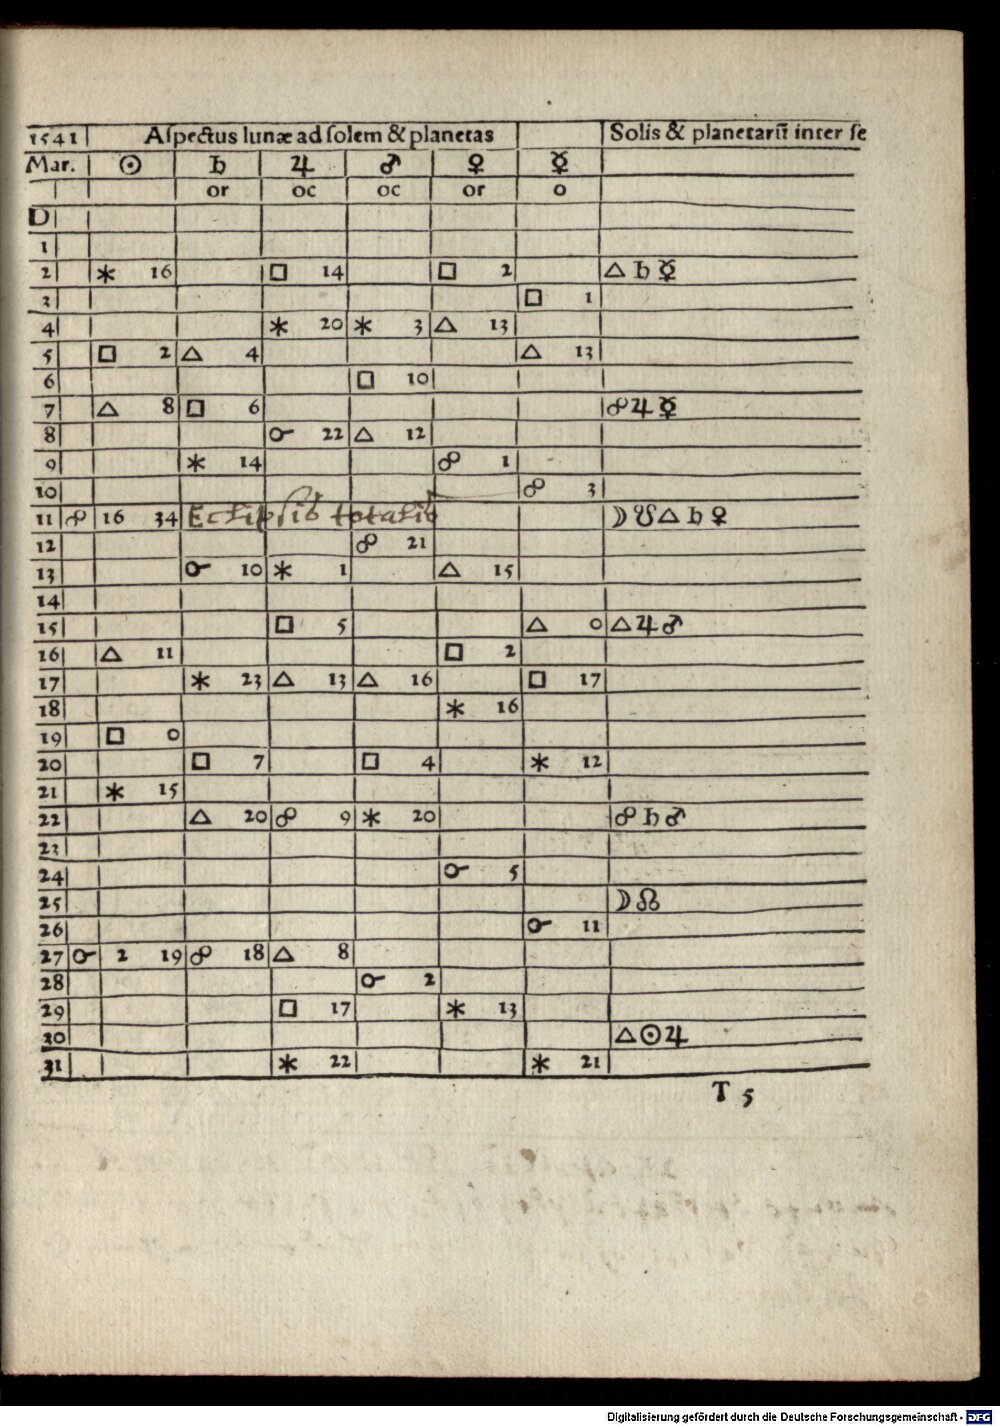 1541 Aſpectus lunæ ad ſolem & planetas Solis & planetarū inter ſe
Mar. ☉ ♄ ♃ ♂ ♀ ☿
or oc oc or o
D
1
2 ⚹ 16 □ 14 □ 2 △ ♄ ☿
3 □ 1
4 ⚹ 20 ⚹ 3 △ 13
5 □ 2 △ 4 △ 13
6 □ 10
7 △ 8 □ 6 ☍ ♃ ☿
8 ☌ 22 △ 12
9 ⚹ 14 ☍ 1
10 ☍ 3
11 ☍ 16 34 Eclipsis totalis ☽ ☋ △ ♄ ♀
12 ☍ 21
13 ☌ 10 ⚹ 1 △ 15
14
15 □ 5 △ 0 △ ♃ ♂
16 △ 11 □ 2
17 ⚹ 23 △ 13 △ 16 □ 17
18 ⚹ 16
19 □ 0
20 □ 7 □ 4 ⚹ 12
21 ⚹ 15
22 △ 20 ☍ 9 ⚹ 20 ☍ ♄ ♂
23
24 ☌ 5
25 ☽ ☊
26 ☌ 11
27 ☌ 2 19 ☍ 18 △ 8
28 ☌ 2
29 □ 17 ⚹ 13
30 △ ☉ ♃
31 ⚹ 22 ⚹ 21
T 5
Digitalisierung gefördert durch die Deutsche Forschungsgemeinschaft - DFG